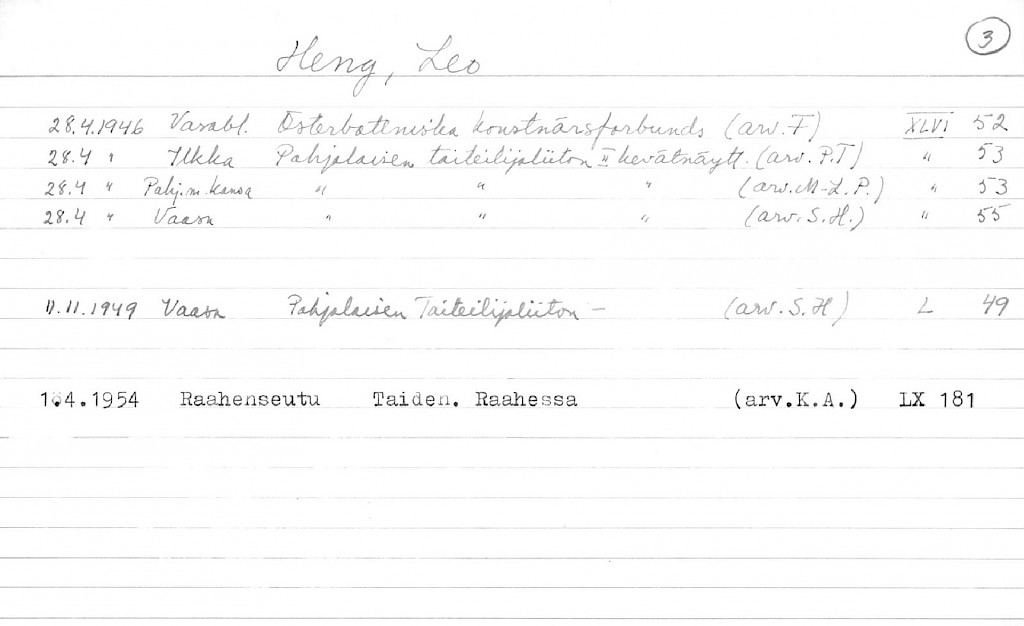 3
Heng, Leo
28.4.1946 Vasabl. Österbottniska konstnärsforbunds (arv. F) XLVI 52
28.4 " Ilkka Pohjalaisen taiteilijaliiton II kevätnäytt. (arv. P.T) " 53
28.4 " Pohj.m. kansa " " " (arv. M-L.P.) " 53
28.4 " Vaasa " " " (arv. S.H.) " 55
11.11.1949 Vaasa Pohjalaisen Taiteilijaliiton – (arv. S.H) L 49
1.4.1954 Raahenseutu Taiden. Raahessa (arv.K.A.) LX 181